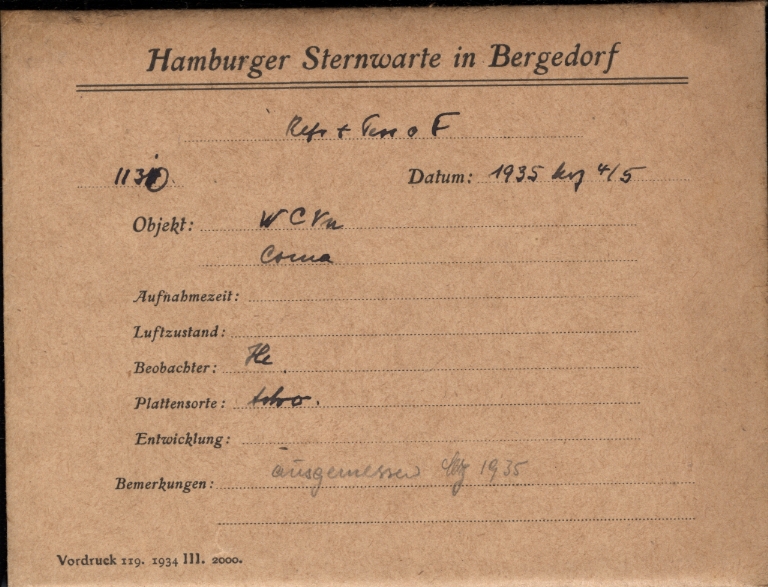 Hamburger Sternwarte in Bergedorf
Refr + Tess o F
113 Datum: 1935 4/5
Objekt: W C Vn
Coma
Aufnahmezeit:
Luftzustand:
Beobachter: He
Plattensorte:
Entwicklung:
Bemerkungen: ausgemessen 1935
Vordruck 119. 1934 III. 2000.